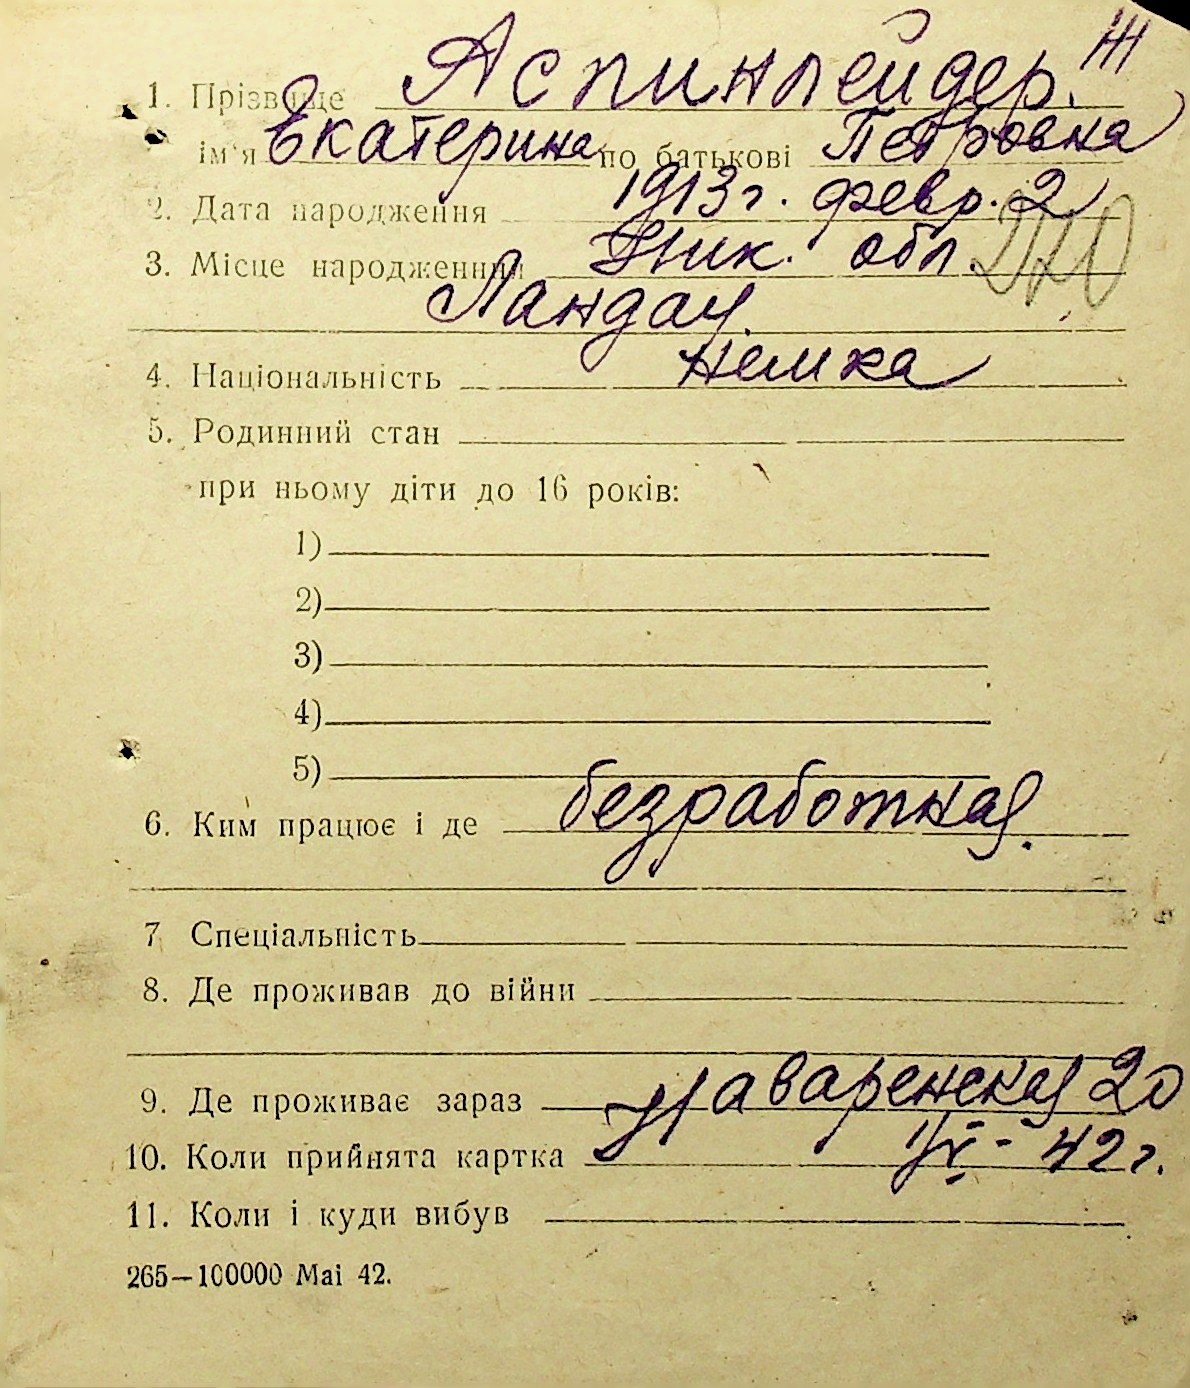 Ж
1. Прізвище Аспинлейдер.
ім'я Екатерина по батькові Петровна
2. Дата народження 1913 г. февр. 2
3. Місце народженння Ник. обл.
Ландау.
4. Національність немка
5. Родинний стан
при ньому діти до 16 років:
1)
2)
3)
4)
5)
6. Ким працює і де безработная.
7 Спеціальність
8. Де проживав до війни
9. Де проживає зараз Наваренская 20
10. Коли прийнята картка 42 г.
11. Коли і куди вибув
265—100000 Mai 42.